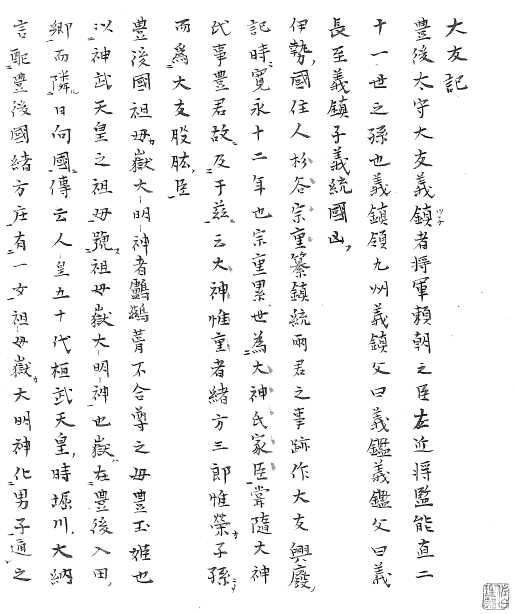 大友記
豊後太守大友義鎮者将軍頼朝之臣左近将監能直二
十一世之孫也義鎮領九州義鎮父曰義鑑義鑑父曰義
長至義鎮子義統國亡
伊勢國住人杉谷宗重纂鎮統両君之事跡作大友興廢
記時寛永十二年也宗重累世為大神氏家臣嘗隨大神
氏事豊君故及于茲云大神惟重者緒方三郎惟榮子孫
而為大友股肱臣
豊後國祖母嶽大明神者鸕鷀葺不合尊之母豊玉姫也
以神武天皇之祖母號祖母嶽大明神也嶽在豊後入田
郷而隣日向國傳云人皇五十代桓武天皇時堀川大納
言配豊後國緒方庄有一女祖母嶽大明神化男子通之